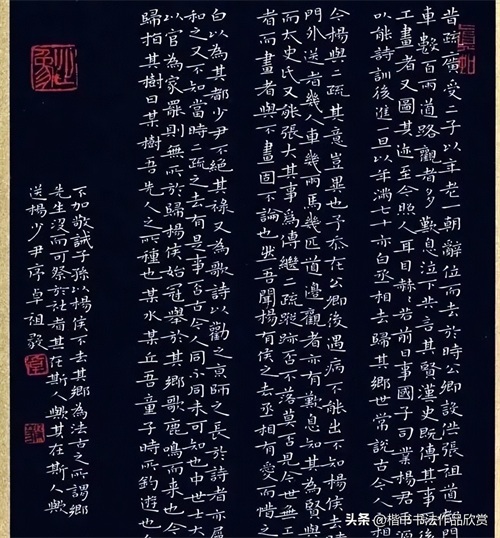 昔疏廣受二子以年老一朝辭位而去於時公卿設供張祖道都門
車數百兩道路觀者多歎息泣下共言其賢漢史既傳其事而後
工畫者又圖其迹至今照人耳目赫赫若前日事國子司業楊君巨源
以能詩訓後進一旦以年滿七十亦白丞相去歸其鄉世常說古今人
今楊與二疏其意豈異也予忝在公卿後遇病不能出不知楊侯去時
門外送者幾人車幾兩馬幾匹道邊觀者亦有歎息知其為賢與
而太史氏又能張大其事為傳繼二疏蹤跡否不落莫否見今世無工
者而畫者與不畫固不論也然吾聞楊有侯之去丞相有愛而惜之
白以為其都少尹不絕其祿又為歌詩以勸之京師之長於詩者亦屬
和之又不知當時二疏之去有是事否古今人同不同未可知也中世士大
以官為家罷則無所於歸楊侯始冠舉於其鄉歌鹿鳴而來也今
歸指其樹曰某樹吾先人之所種也某水某丘吾童子時所釣遊也
不加敬誡子孫以楊侯不去其鄉為法古之所謂鄉
先生沒而可祭於社者其在斯人歟其在斯人歟
送楊少尹序 卓祖敬
头条 @楷书书法作品欣赏